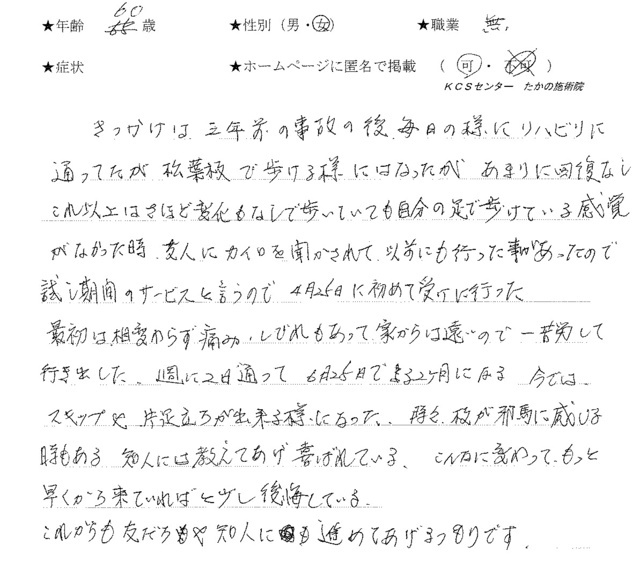 ★年齢 60 歳 ★性別（男・女） ★職業 無
★症状 ★ホームページに匿名で掲載 （ 可 ・ 不可 ）
ＫＣＳセンター たかの施術院
きっかけは 三年前の事故の後、毎日の様にリハビリに
通ってたが 松葉杖で歩ける様にはなったが あまりに回復なし
これ以上はさほど変化もなしで歩いていても自分の足で歩けている感覚
がなかった時、友人にカイロを聞かされて 以前にも行った事があったので
試し期間のサービスと言うので 4月25日に初めて受けに行った
最初は相変わらず痛み、しびれもあって 家からは遠いので 一苦労して
行き出した、週に2日通って 6月25日でまる2ヶ月になる 今では
スキップや 片足立ちが出来る様になった、時々 杖が邪馬に感じる
時もある 知人には教えてあげ喜ばれている、こんなに変わって、もっと
早くから来ていればと少し後悔している、
これからも友だちや知人にも進めてあげるつもりです、